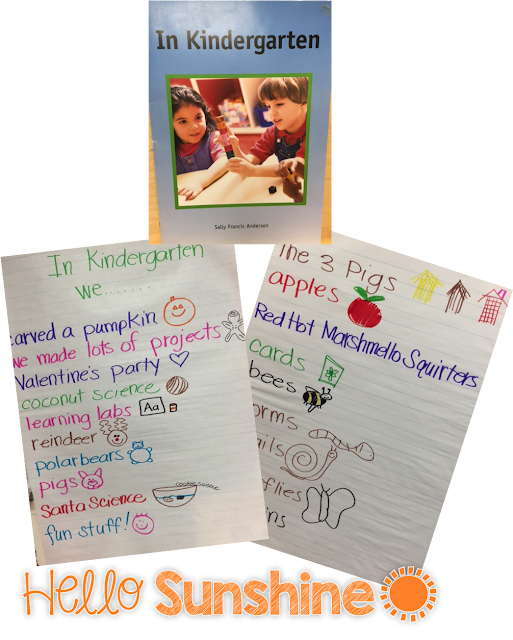 In Kindergarten
Sally Francis Anderson
In Kindergarten
we.......
carved a pumpkin
we made lots of projects
Valentine's party
coconut science
learning labs Aa
reindeer
polarbears
pigs
Santa Science cookie science
fun stuff!
The 3 Pigs
apples
Red Hot Marshmello Squirters
cards
bees
orms
ails
flies
ins
Hello Sunshine